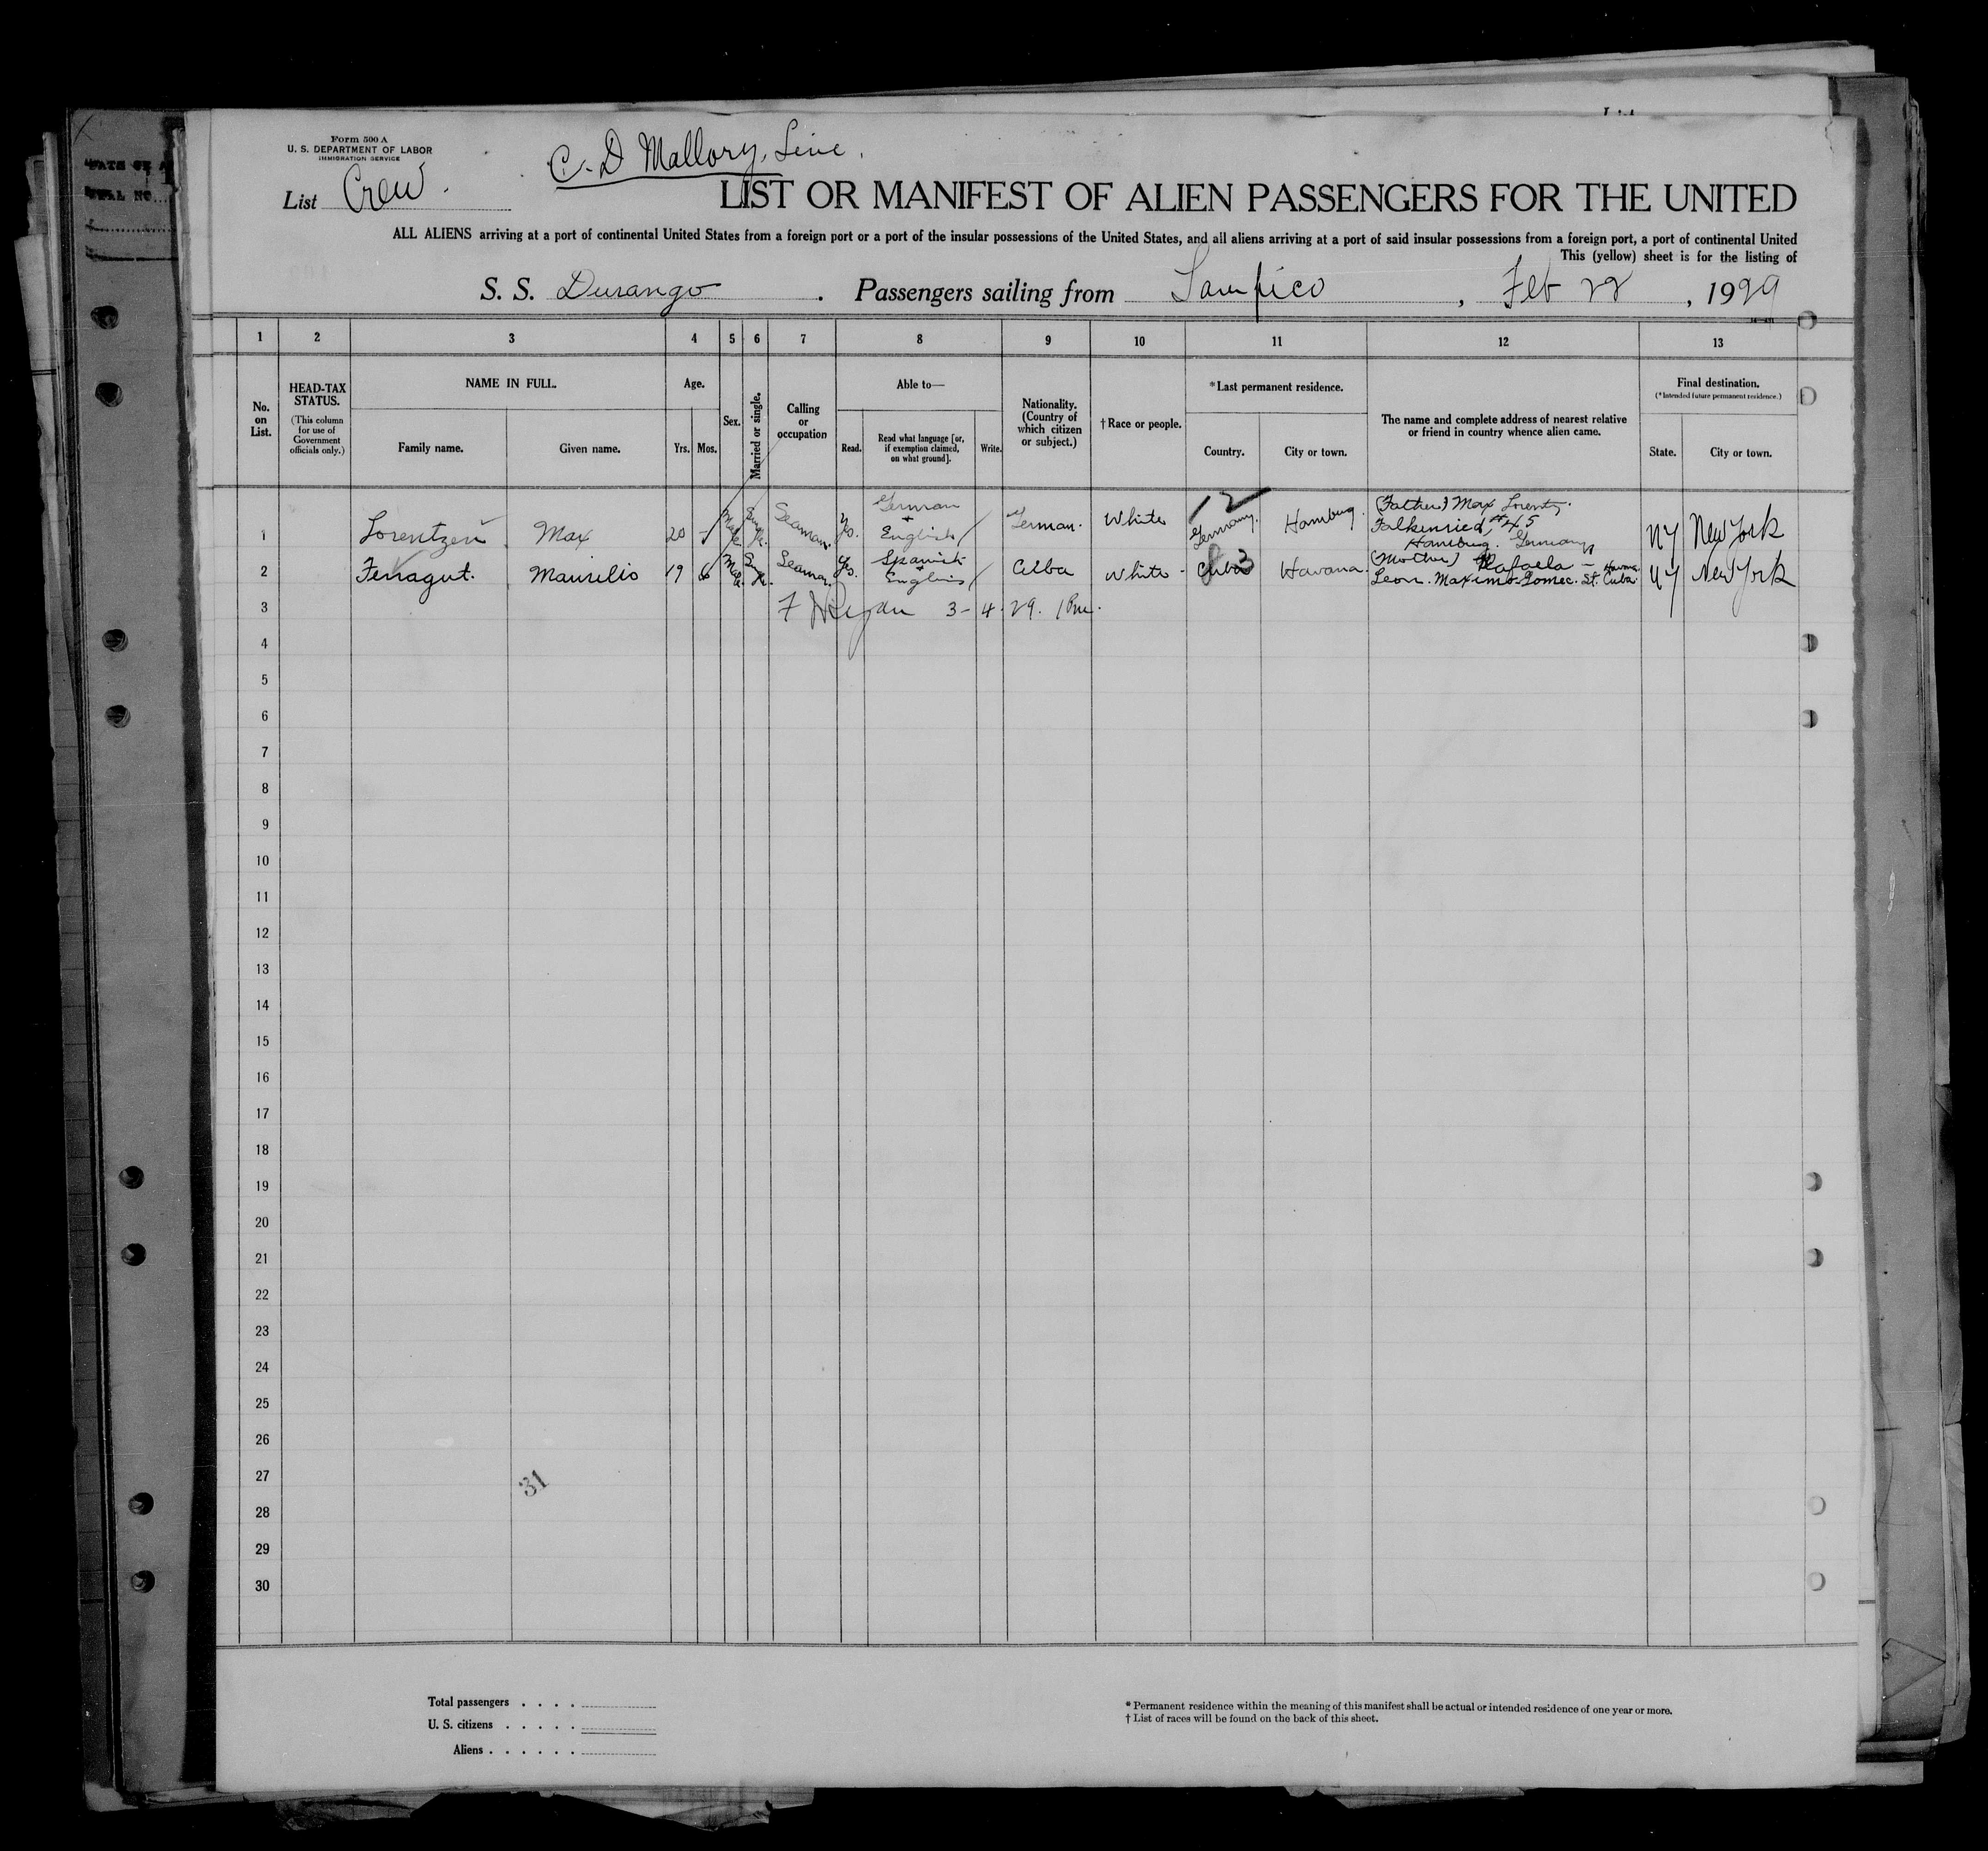 Form 500 A
U. S. DEPARTMENT OF LABOR
IMMIGRATION SERVICE
C. D Mallory, Line.
List Crew.
LIST OR MANIFEST OF ALIEN PASSENGERS FOR THE UNITED
ALL ALIENS arriving at a port of continental United States from a foreign port or a port of the insular possessions of the United States, and all aliens arriving at a port of said insular possessions from a foreign port, a port of continental United
This (yellow) sheet is for the listing of
S. S. Durango . Passengers sailing from Tampico , Feb 22 , 1929
1 2 3 4 5 6 7 8 9 10 11 12 13
No. on List.
HEAD-TAX STATUS.
(This column for use of Government officials only.)
NAME IN FULL.
Family name. Given name.
Age.
Yrs. Mos.
Sex.
Married or single.
Calling or occupation
Able to—
Read. Read what language [or, if exemption claimed, on what ground]. Write.
Nationality. (Country of which citizen or subject.)
† Race or people.
* Last permanent residence.
Country. City or town.
The name and complete address of nearest relative or friend in country whence alien came.
Final destination.
(* Intended future permanent residence.)
State. City or town.
1 Lorentzen Max 20 Male Single Seaman. Yes. German + English / German. White 12 Germany. Hamburg. (Father) Max Lorentz. Falkenried, #45 Hamburg. Germany NY New York
2 Ferragut. Maurilio 19 6 Male Single Seaman. Yes. Spanish + English / Cuba White - Cuba 3 Havana. (Mother) Rafaela - Leon. Maximo Gomec. St. Havana Cuba NY New York
3 F Ryan 3-4-29. 1 Pm.
4
5
6
7
8
9
10
11
12
13
14
15
16
17
18
19
20
21
22
23
24
25
26
27
31
28
29
30
Total passengers . . . .
U. S. citizens . . . . .
Aliens . . . . . .
* Permanent residence within the meaning of this manifest shall be actual or intended residence of one year or more.
† List of races will be found on the back of this sheet.